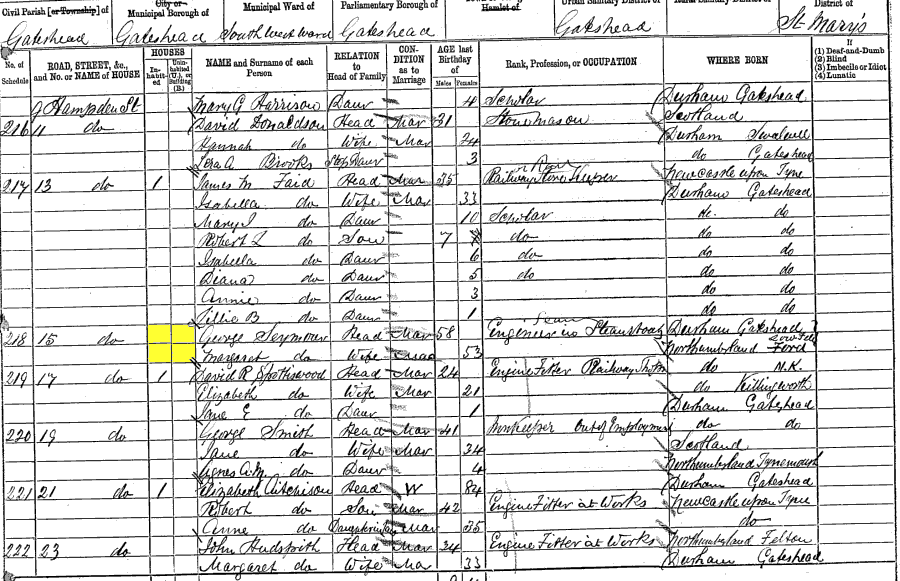 Civil Parish [or Township] of City or Municipal Borough of Municipal Ward of Parliamentary Borough of Hamlet of Urban Sanitary District of District of
Gateshead Gateshead South West Ward Gateshead Gateshead St Mary's
No. of Schedule ROAD, STREET, &c., and No. or NAME of HOUSE HOUSES In-habit-ed Unin-habited (U.), or Building (B.) NAME and Surname of each Person RELATION to Head of Family CON-DITION as to Marriage AGE last Birthday of Males Females Rank, Profession, or OCCUPATION WHERE BORN If (1) Deaf-and-Dumb (2) Blind (3) Imbecile or Idiot (4) Lunatic
9 Hampden St Mary G Harrison Daur 4 Scholar Durham Gateshead
216 11 do David Donaldson Head Mar 31 Stone mason Scotland
Hannah do Wife Mar 24 Durham Swalwell
Brooks Step Daur 3 do Gateshead
217 13 do 1 James M Faid Head Mar 35 Railway Store Keeper Newcastle upon Tyne
Isabella do Wife Mar 33 Durham Gateshead
Mary I do Daur 10 Scholar do do
Robert L do Son 7 do do do
Isabella do Daur 6 do do do
Diana do Daur 5 do do do
Annie do Daur 3 do do
Tillie B do Daur 1 do do
218 15 do George Seymour Head Mar 58 Engineer in Steamboat Durham Gateshead
Margaret do Wife Mar 53 Northumberland Ford
219 17 do 1 David R Spothswood Head Mar 24 Engine Fitter Railway do N.K.
Elizabeth do Wife Mar 21 do Killingworth
Jane E do Daur 1 Durham Gateshead
220 19 do George Smith Head Mar 41 Innkeeper out of Employment do do
Jane do Wife Mar 34 Scotland
Agnes do Daur 4 Northumberland Tynemouth
221 21 do 1 Elizabeth Aitchison Head W 84 Durham Gateshead
Robert do Son Mar 42 Engine Fitter at Works Newcastle upon Tyne
Anne do Daughter in law Mar 35 do
222 23 do John Hudspith Head Mar 34 Engine Fitter at Works Northumberland Felton
Margaret do Wife Ma 33 Durham Gateshead